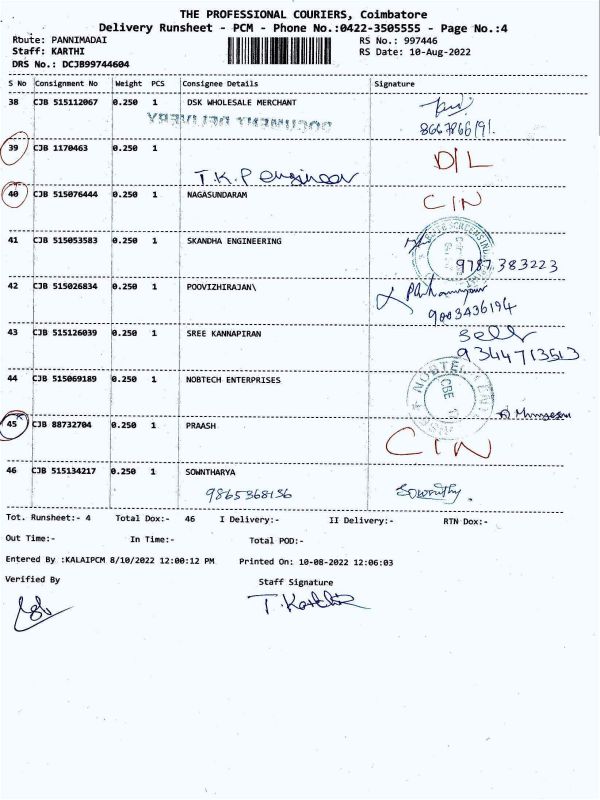 THE PROFESSIONAL COURIERS, Coimbatore
Delivery Runsheet - PCM - Phone No.:0422-3505555 - Page No.:4
Route: PANNIMADAI RS No.: 997446
Staff: KARTHI RS Date: 10-Aug-2022
DRS No.: DCJB99744604
S No Consignment No Weight PCS Consignee Details Signature
38 CJB 515112067 0.250 1 DSK WHOLESALE MERCHANT
DOCUMENT DELIVERY
8667866191.
39 CJB 1170463 0.250 1 D/L
T.K.P engineer
40 CJB 515076444 0.250 1 NAGASUNDARAM CIN
41 CJB 515053583 0.250 1 SKANDHA ENGINEERING
9787383223
42 CJB 515026834 0.250 1 POOVIZHIRAJAN\
9003436194
43 CJB 515126039 0.250 1 SREE KANNAPIRAN Self
9344713513
44 CJB 515069189 0.250 1 NOBTECH ENTERPRISES
CBE
45 CJB 88732704 0.250 1 PRAASH CIN
46 CJB 515134217 0.250 1 SOWNTHARYA
9865368136
Tot. Runsheet:- 4 Total Dox:- 46 I Delivery:- II Delivery:- RTN Dox:-
Out Time:- In Time:- Total POD:-
Entered By :KALAIPCM 8/10/2022 12:00:12 PM Printed On: 10-08-2022 12:06:03
Verified By Staff Signature
T. Karthik